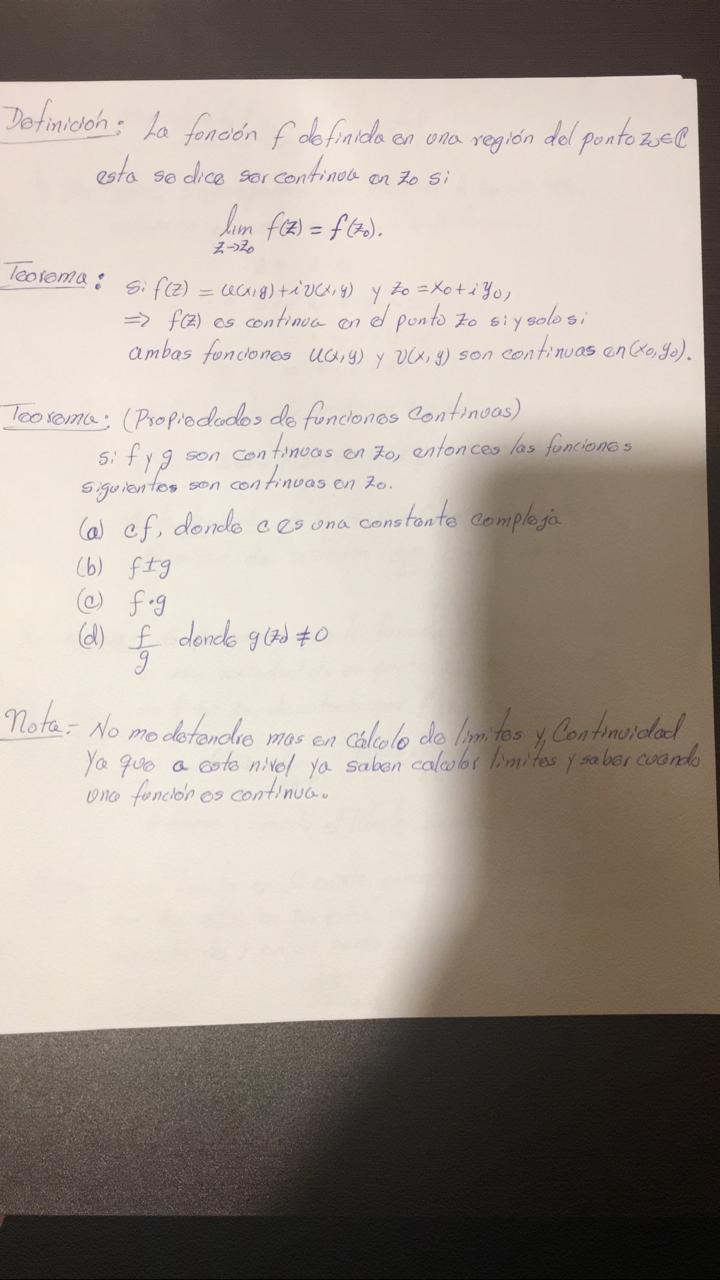 Definición: La función f definida en una región del punto z₀∈ℂ
esta se dice ser continua en z₀ si
lim f(z) = f(z₀).
z→z₀
Teorema: si f(z) = u(x,y)+iv(x,y) y z₀ = x₀+iy₀,
⇒ f(z) es continua en el punto z₀ si y solo si
ambas funciones u(x,y) y v(x,y) son continuas en (x₀,y₀).
Teorema: (Propiedades de funciones continuas)
si f y g son continuas en z₀, entonces las funciones
siguientes son continuas en z₀.
(a) cf, donde c es una constante compleja
(b) f±g
(c) f·g
(d) f/g donde g(z₀) ≠ 0
Nota= No me detendre mas en cálculo de limites y Continuidad
Ya que a este nivel ya saben calcular limites y saber cuando
una función es continua.